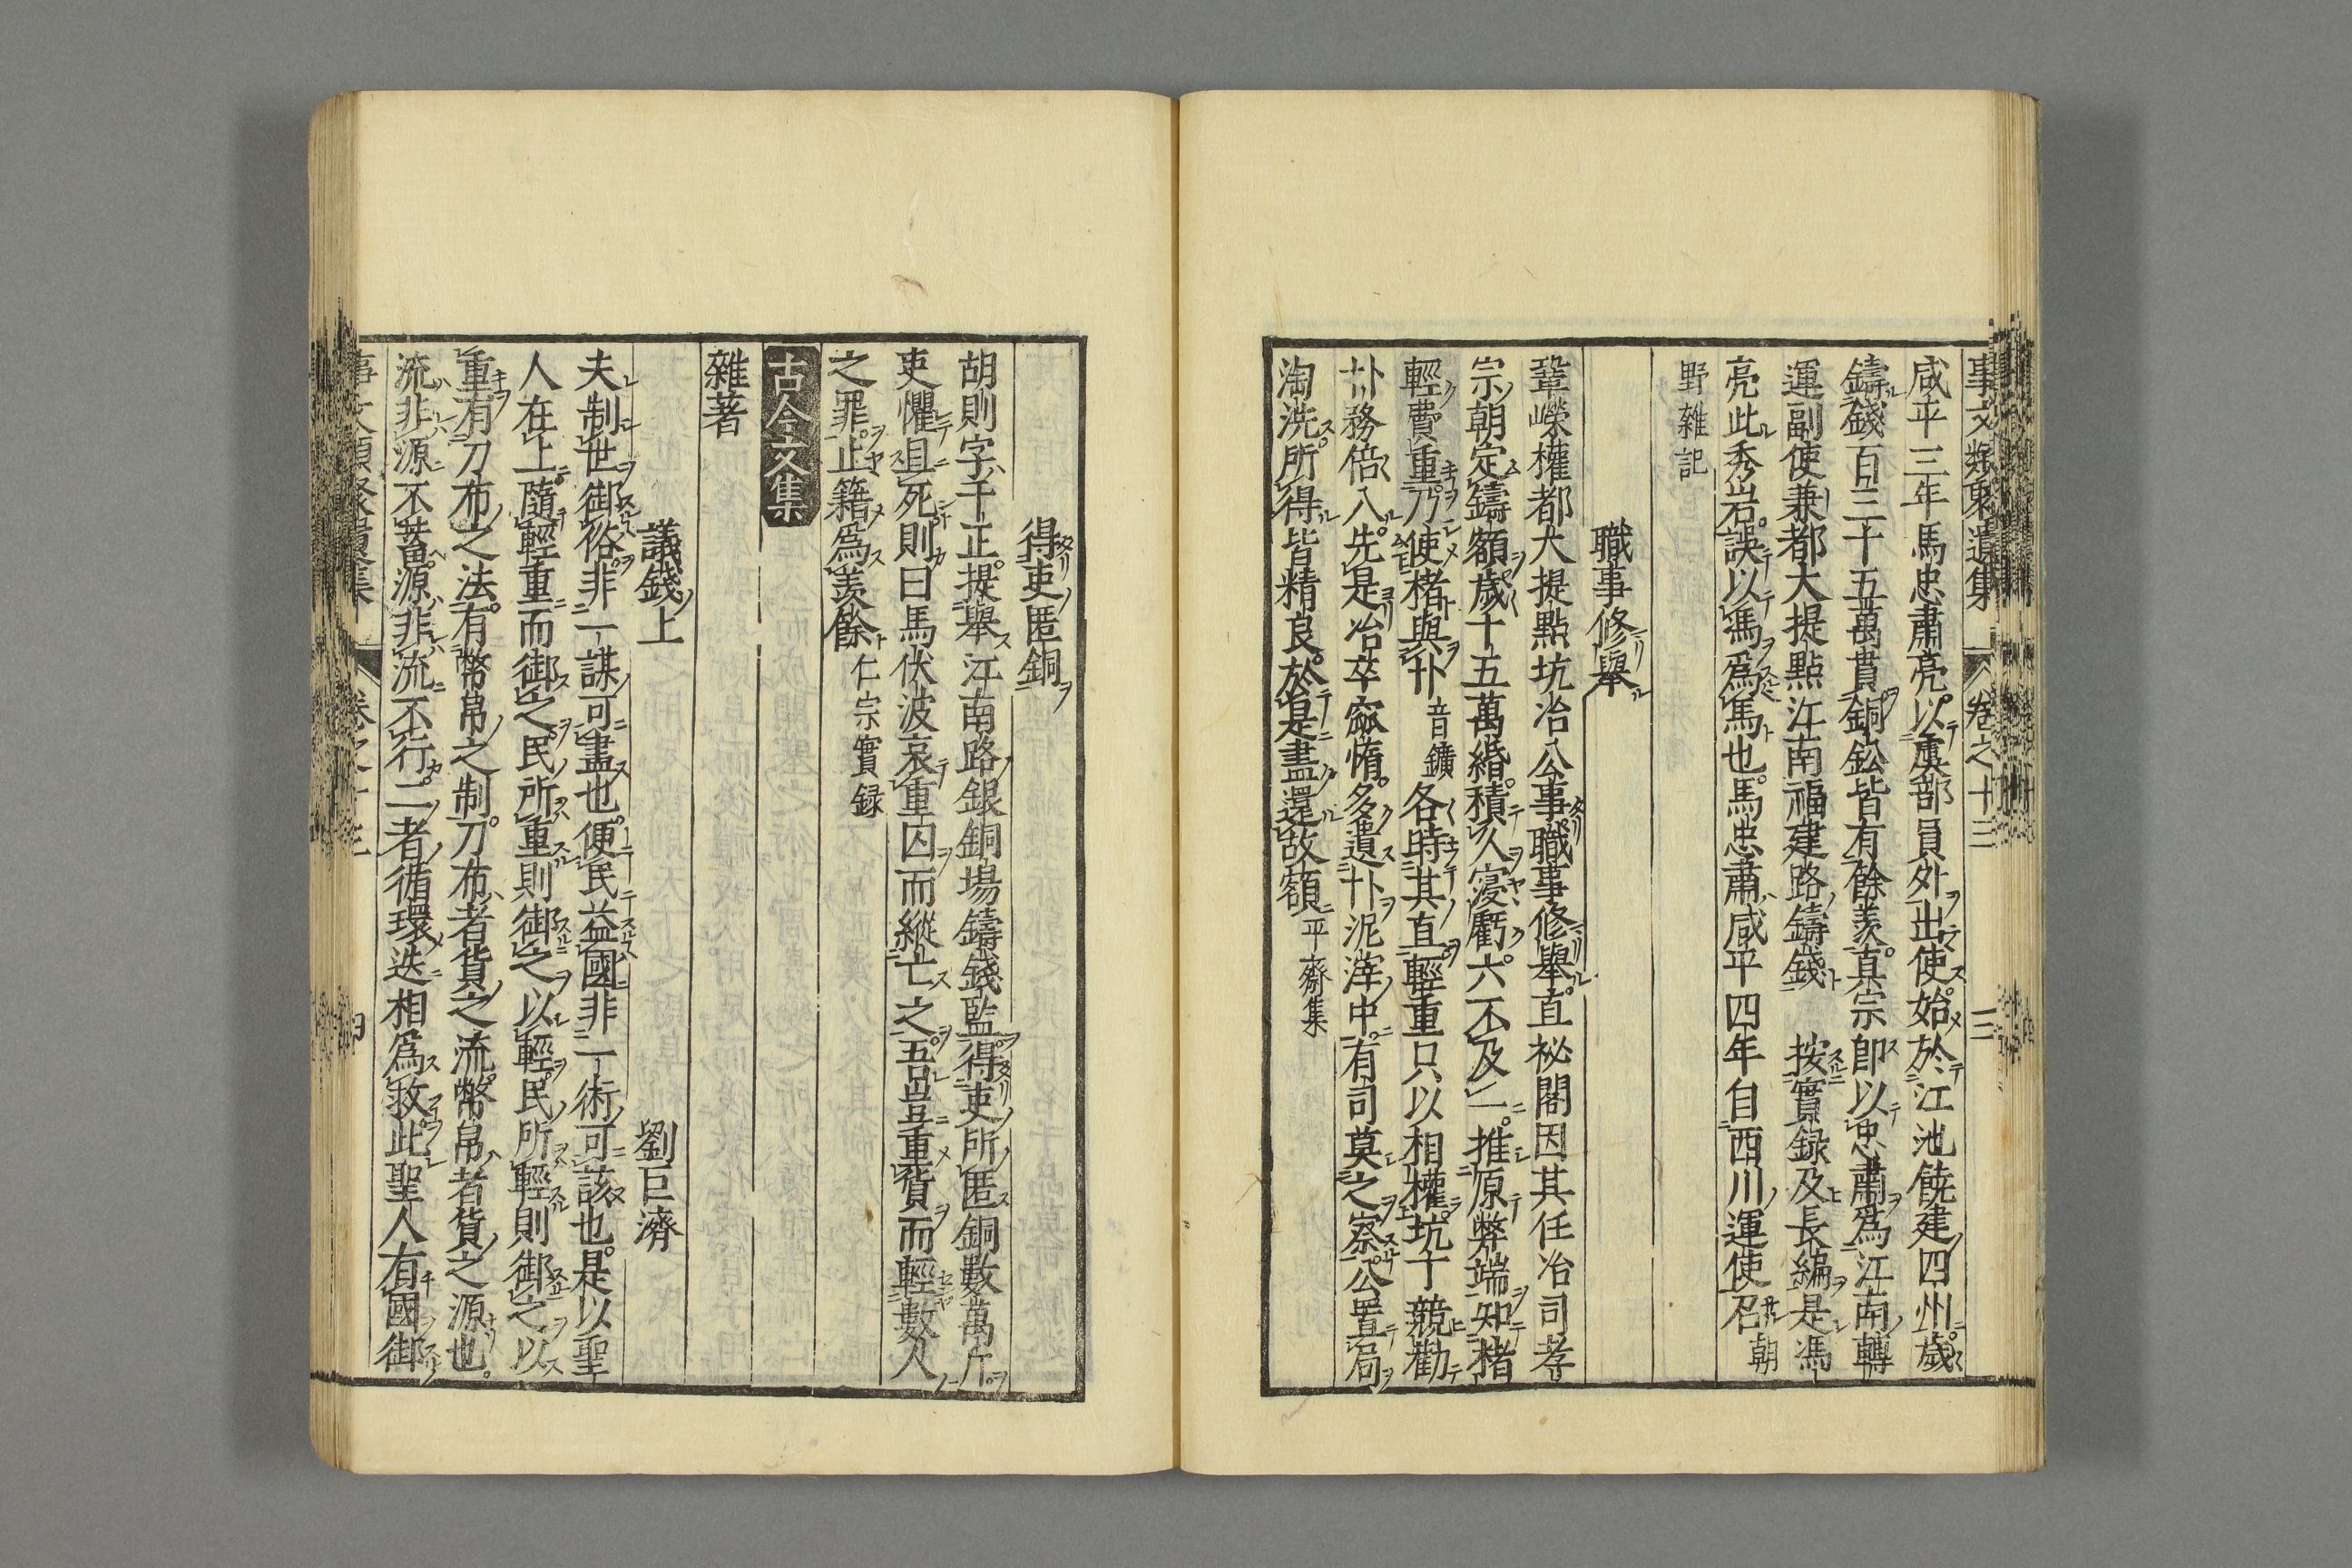 事文類聚遺集 卷之十三 三
咸平三年馬忠肅亮以虞部員外出使始於江池饒建四州歲
鑄錢百三十五萬貫銅鈆皆有餘羨真宗即以忠肅爲江南轉
運副使兼都大提點江南福建路鑄錢 按實錄及長編是馮
亮此秀岩誤以馮爲馬也馬忠肅咸平四年自西川運使召朝
野雜記
職事修舉
鞏嶸權都大提點坑冶公事職事修舉直祕閣因其任冶司孝
宗朝定鑄額歲十五萬緡積久寖虧六不及一推原弊端知楮
輕費重乃使楮與卝音鑛各時其直輕重只以相權坑干競勸
卝務倍入先是冶卒窳惰多遺卝泥滓中有司莫之察公置局
淘洗所得皆精良於是盡還故額平齋集
得吏匿銅
胡則字子正提舉江南路銀銅場鑄錢監得吏所匿銅數萬斤
吏懼且死則曰馬伏波哀重囚而縱亡之吾豈重貨而輕數人
之罪止籍爲羨餘仁宗實録
古今文集
雜著
議錢上 劉巨濟
夫制世御俗非一謀可盡也便民益國非一術可該也是以聖
人在上隨輕重而御之民所重則御之以輕民所輕則御之以
重有刀布之法有幣帛之制刀布者貨之流幣帛者貨之源也
流非源不蓄源非流不行二者循環迭相爲救此聖人有國御
事文類聚遺集 卷之十三 四